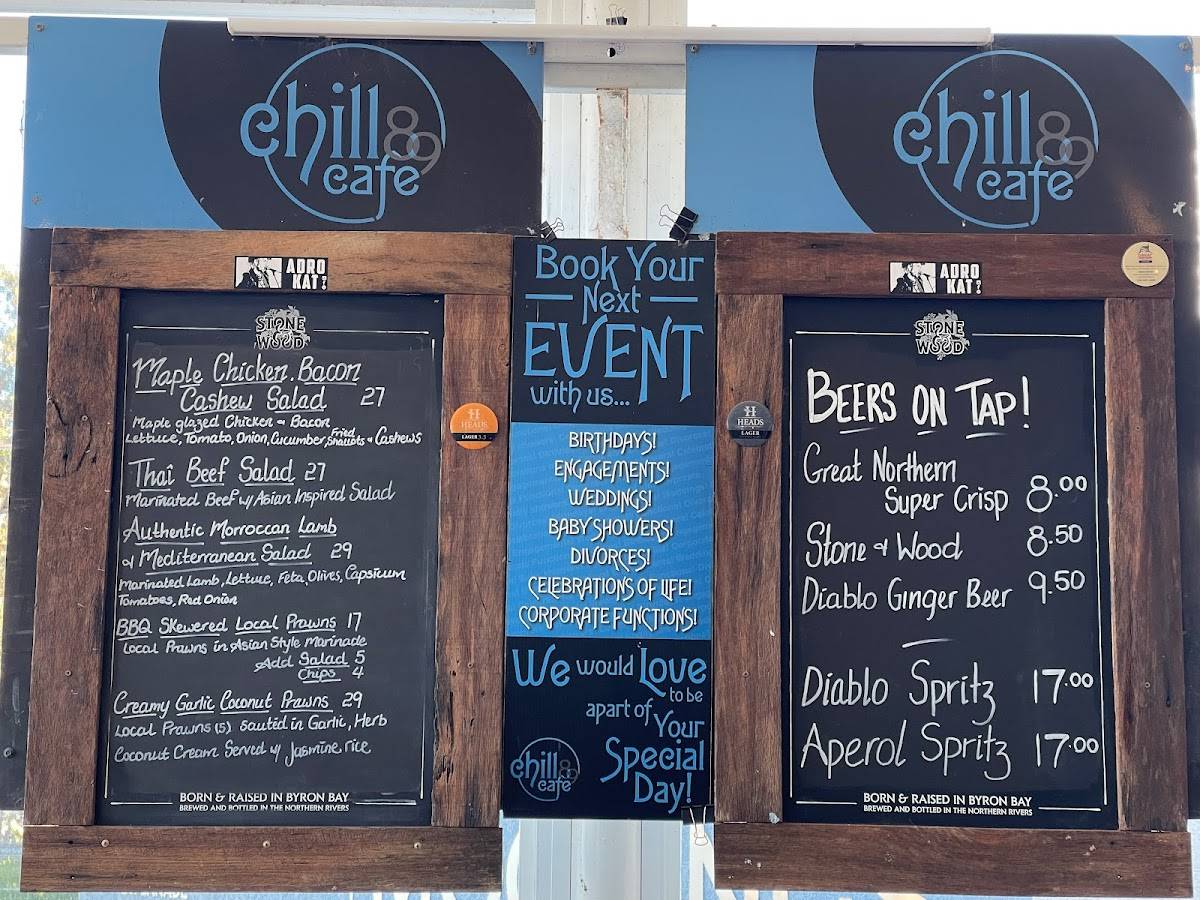 chill 89
cafe
ADRO
KAT?!
STONE
& WOOD
Maple Chicken. Bacon
Cashew Salad 27
Maple glazed Chicken & Bacon
Lettuce, Tomato, Onion, Cucumber, Fried Shallots & Cashews
Thai Beef Salad 27
Marinated Beef w/ Asian Inspired Salad
Authentic Morroccan Lamb
& Mediterranean Salad 29
Marinated Lamb, Lettuce, Feta, Olives, Capsicum
Tomatoes, Red Onion
BBQ Skewered Local Prawns 17
Local Prawns in Asian Style Marinade
Add Salad 5
Chips 4
Creamy Garlic Coconut Prawns 29
Local Prawns (5) sautéd in Garlic, Herb
Coconut Cream Served w/ Jasmine rice
BORN & RAISED IN BYRON BAY
BREWED AND BOTTLED IN THE NORTHERN RIVERS
HEADS
LAGER 3.5
Book Your
Next
EVENT
with us...
BIRTHDAYS!
ENGAGEMENTS!
WEDDINGS!
BABY SHOWERS!
DIVORCES!
CELEBRATIONS OF LIFE!
CORPORATE FUNCTIONS!
We would Love
to be
apart of Your
Special
Day!
chill 89
cafe
chill 89
cafe
ADRO
KAT?!
HEADS
LAGER
STONE
& WOOD
BEERS ON TAP!
Great Northern
Super Crisp 8.00
Stone & Wood 8.50
Diablo Ginger Beer 9.50
Diablo Spritz 17.00
Aperol Spritz 17.00
BORN & RAISED IN BYRON BAY
BREWED AND BOTTLED IN THE NORTHERN RIVERS